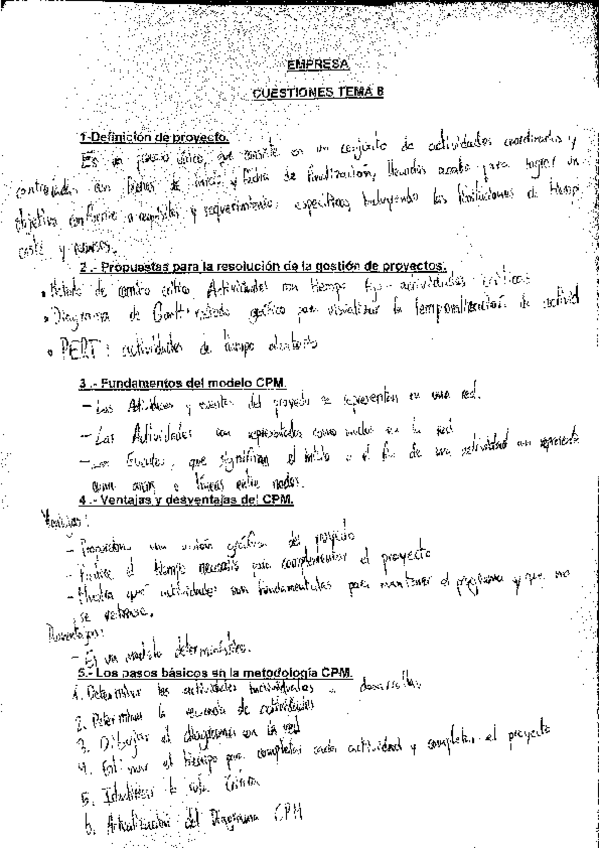 EMPRESA
CUESTIONES TEMA 8
1-Definición de proyecto.
Es un proceso único, que consiste en un conjunto de actividades coordinadas y
controladas con fechas de inicio y fecha de finalización, llevadas acabo para lograr un
objetivo conforme a requisitos y requerimientos específicos, incluyendo las limitaciones de tiempo
coste y recursos.
2 .- Propuestas para la resolución de la gestión de proyectos.
• Método de camino crítico Actividades con tiempo fijo - actividades críticas
• Diagrama de Gantt: método gráfico para visualizar la temporalización de activid
• PERT: actividades de tiempo aleatorio
3 .- Fundamentos del modelo CPM.
- Las Actividades y eventos del proyecto se representan en una red.
- Las Actividades son representadas como nodos en la red
- Los Eventos, que significan el inicio o el fin de una actividad son represente
como arcos o líneas entre nodos.
4 .- Ventajas y desventajas del CPM.
Ventajas:
- Proporciona una visión gráfica del proyecto
- Predice el tiempo necesario para complementar el proyecto
- Muestra qué actividades son fundamentales para mantener el programa y que no
se retrase.
Desventajas:
- Es un modelo determinístico.
5.- Los pasos básicos en la metodología CPM.
1. Determinar las actividades individuales a desarrollar
2. Determinar la secuencia de actividades
3. Dibujar el diagrama con la red
4. Estimar el tiempo para completar cada actividad y completar el proyecto
5. Identificar la ruta crítica
6. Actualización del Diagrama CPM